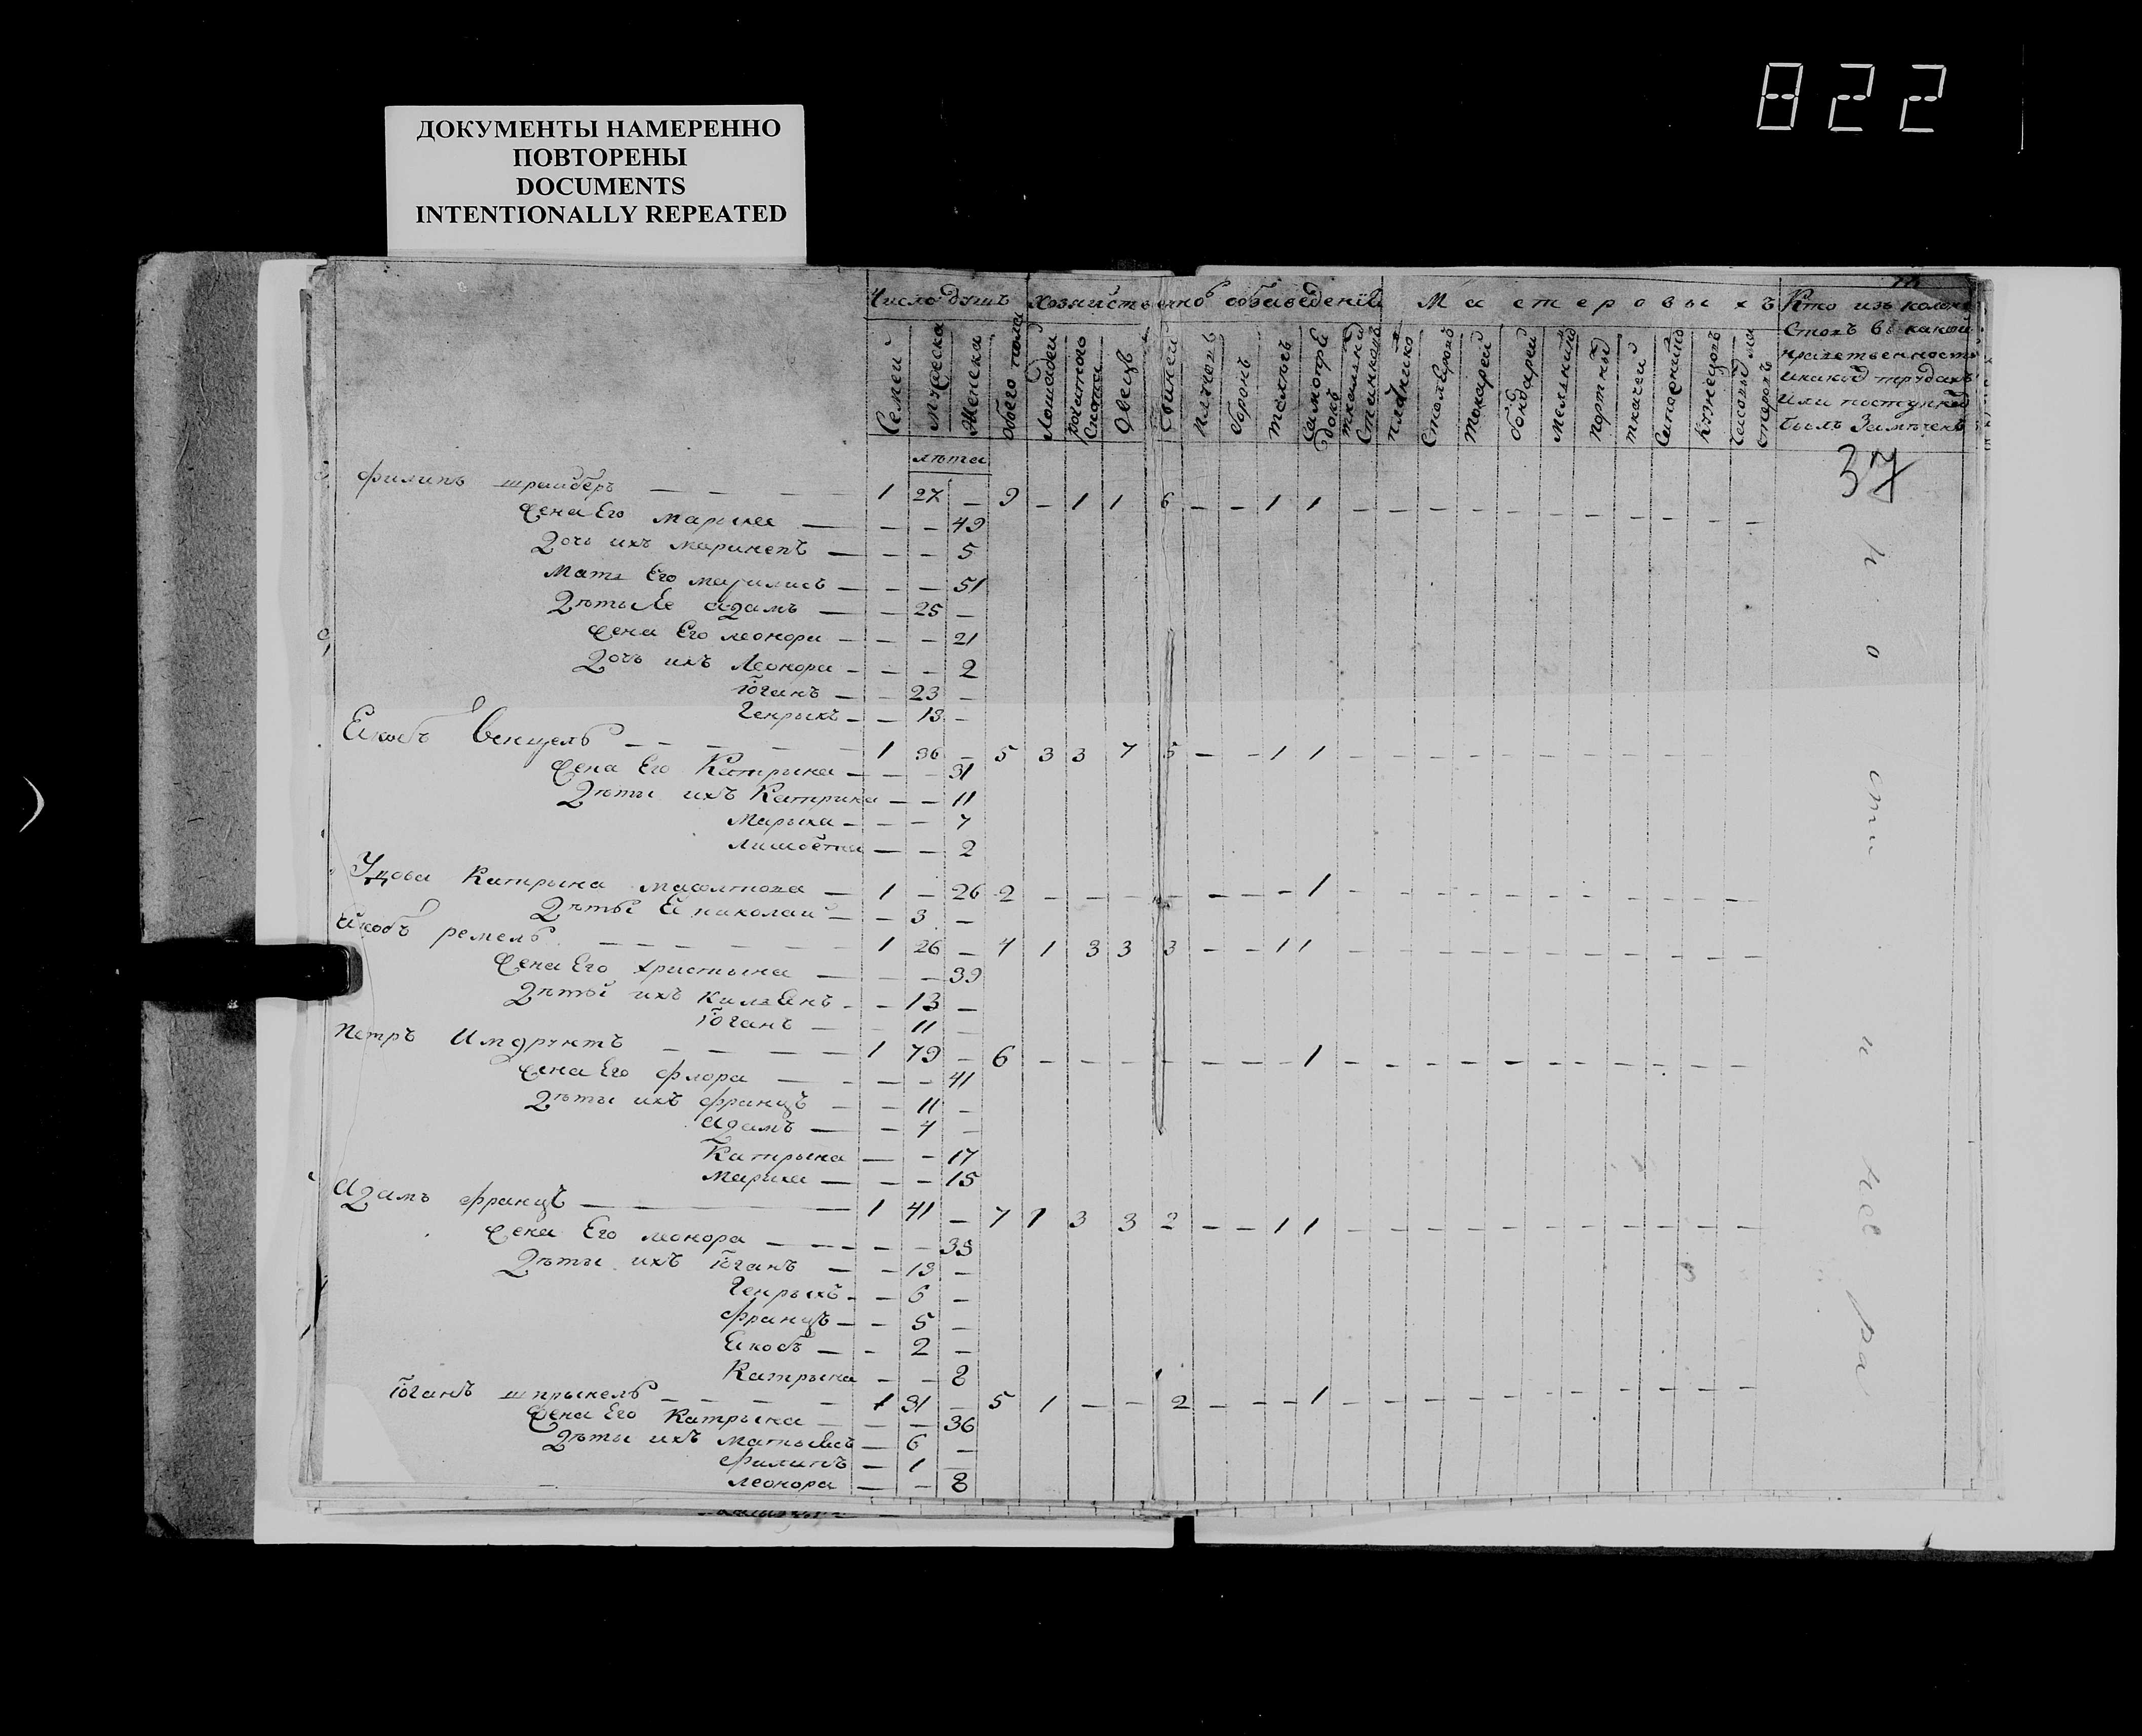 822
ДОКУМЕНТЫ НАМЕРЕННО
ПОВТОРЕНЫ
DOCUMENTS
INTENTIONALLY REPEATED
Число душъ Хозяйственнов обзаведенїи Мастеровыхъ Кто изъ колони
стовъ въ какои
нравственности
и какыхъ трудахъ
или поступкахъ
былъ замѣченъ
Семей Мужеска Женска обего пола Лошадей рогатого скота Овецъ Свиней плуговъ боронъ телѣгъ Самопре докъ ткальных Станковъ плотнико Столяровъ токарей бондарей мельнико портных ткачей Сапожнико Кузнецовъ
лѣта
37
филипъ шрайберъ — — — — 1 27 — 9 — 1 1 6 — — 1 1 — — — — — — — — — — —
Жена Его Марыя — — — 49
Дочь ихъ — — — 5
Мать Его — — — 51
Дѣты Ее адамъ — — 25 —
Жена Его леонора — — — 21
Дочь ихъ Леонора — — — 2
Іоганъ — — 23 —
Генрыхъ — — 13 —
Якобъ Венцель — — — — — 1 36 — 5 3 3 7 5 — — 1 1 — — — — — — — — — —
Жена Его Катрына — — — 31
Дѣты ихъ Катрина — — 11
Марыя — — — 7
— — 2
Удова Катрына — 1 — 26 2 — — — — — — — 1 — — — — — — — — — — —
Дѣты Ей николаи — — 3 —
Якобъ ремель — — — — — — 1 26 — 4 1 3 3 3 — — 1 1 — — — — — — — — — — —
Жена Его христына — — — 39
Дѣты ихъ — — 13 —
Іоганъ — — 11 —
Петръ — — — — 1 79 — 6 — — — — — — — 1 — — — — — — — — — — —
Жена Его флора — — — — 41
Дѣты ихъ францъ — — 11 —
адамъ — — 4 —
Катрына — — 17
Марыя — — — 15
адамъ францъ — — 1 41 — 7 1 3 3 2 — — 1 1 — — — — — — — — — — —
Жена Его леонора — — — — — 35
Дѣты ихъ Іоганъ — — 13 —
Генрыхъ — — 6 —
францъ — — 5 —
Якобъ — — 2 —
Катрына — — 8
Іоганъ шпрыкель — — — — 1 31 — 5 1 — — 2 — — — 1 — — — — — — — — — — —
Жена Его Катрына — — — 36
Дѣты ихъ — 6 —
филипъ — 1 —
леонора — — 8